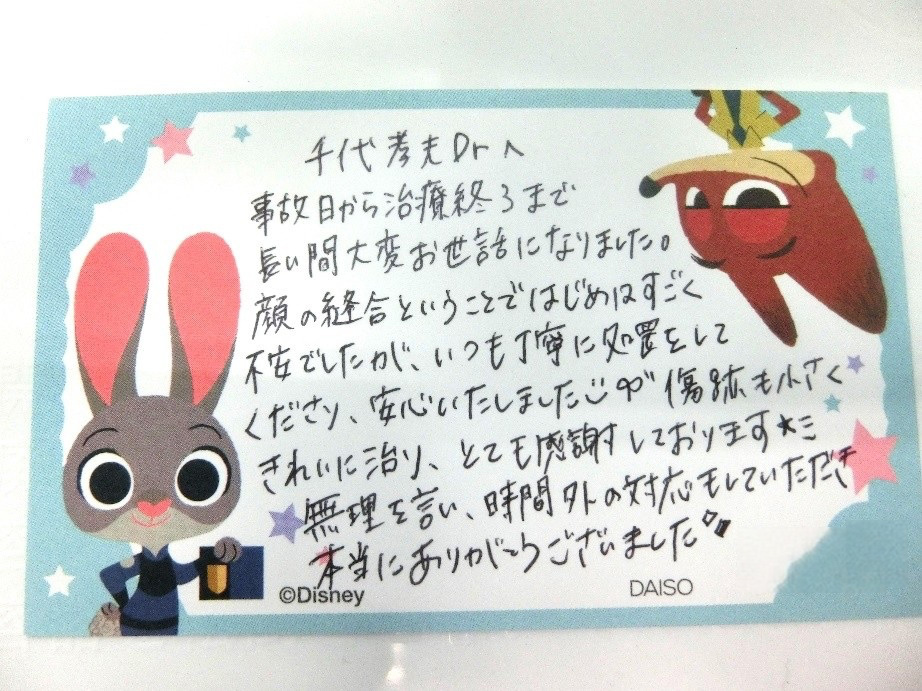 千代孝夫Drへ
事故日から治療終了まで
長い間大変お世話になりました。
顔の縫合ということではじめはすごく
不安でしたが、いつも丁寧に処置をして
くださり、安心いたしました 傷跡も小さく
きれいに治り、とても感謝しております★ミ
無理を言い、時間外の対応もしていただき
本当にありがとうございました
©Disney
DAISO